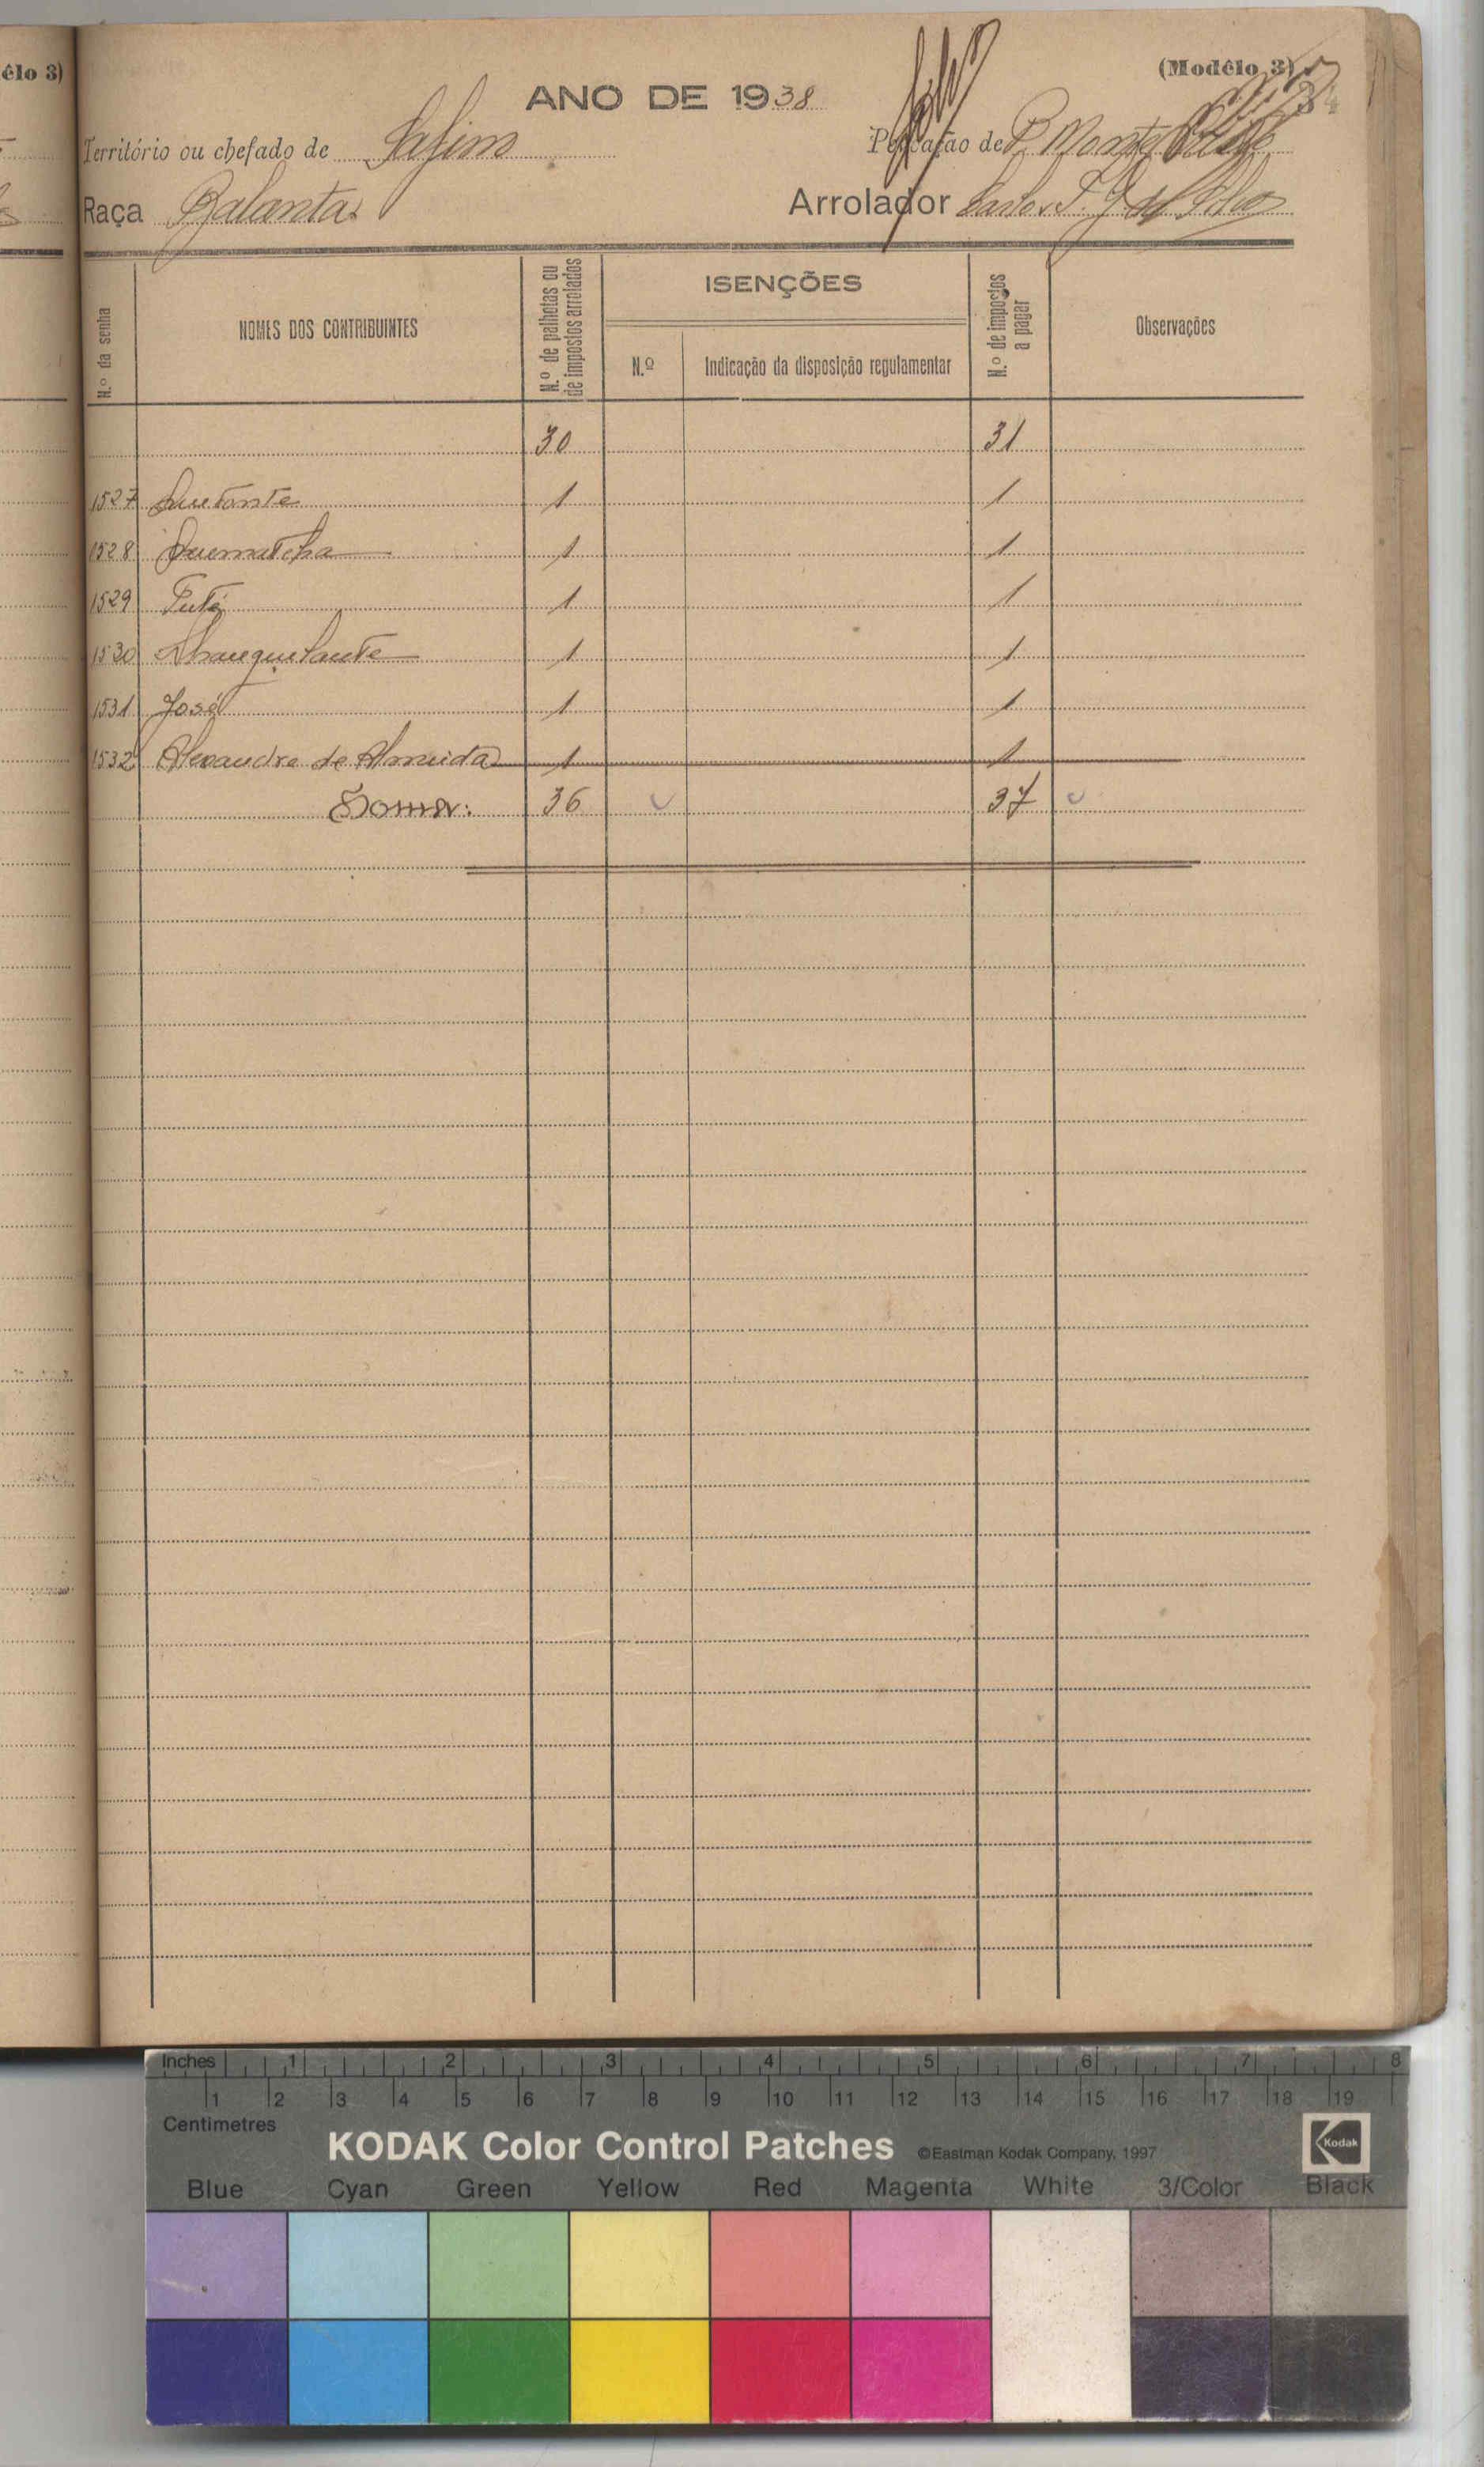 êlo 3)
(Modêlo 3)
ANO DE 1938
Território ou chefado de Safim
Povoação de P. Monte
Raça Balantas
Arrolador Carlos
N.º da senha
NOMES DOS CONTRIBUINTES
N.º de palhotas ou de impostos arrolados
ISENÇÕES
N.º
Indicação da disposição regulamentar
N.º de impostos a pagar
Observações
30 31
1527 1 1
1528 Quematcha 1 1
1529 1 1
1530 1 1
1531 José 1 1
1532 Alexandre de Almeida 1 1
Soma: 36 37
Inches 1 2 3 4 5 6 7 8
1 2 3 4 5 6 7 8 9 10 11 12 13 14 15 16 17 18 19
Centimetres
KODAK Color Control Patches ©Eastman Kodak Company, 1997
Kodak
Blue Cyan Green Yellow Red Magenta White 3/Color Black